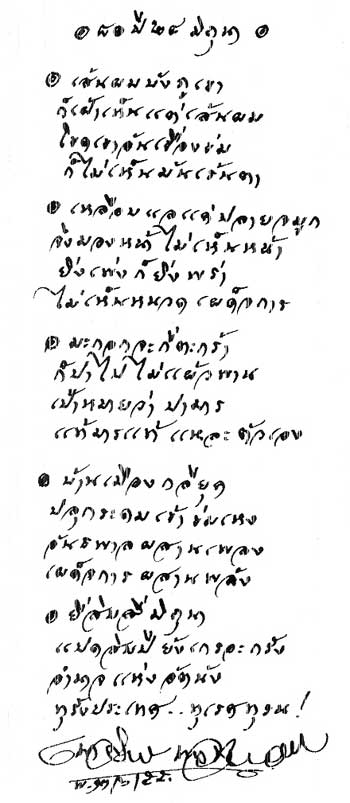 ๏ ๘๐ ปี ๒๔ มิถุนา ๏
๏ เส้นผมบังภูเขา
ก็เฝ้าเห็นแต่เส้นผม
โขดเขาอันเขื่องข่ม
ก็ไม่เห็นมันเร้นตา
๏ เหลือบแลแต่ปลายจมูก
จึงมองหน้าไม่เห็นหน้า
ยิ่งเพ่งก็ยิ่งพร่า
ไม่เห็นหนวดเผด็จการ
๏ มะกอกจะกี่ตะกร้า
ก็ปาไปไม่แผ้วพาน
เป้าหมายว่าปามาร
แท้มารแท้แหละตัวเอง
๏ บ้านเมืองกลียุค
ปลุกระดมเข้าข่มเหง
อันธพาลผสานเพลง
เผด็จการผสานพลัง
๏ ยี่สิบสี่มิถุนา
แปดสิบปียังเกรอะกรัง
อำนาจแห่งอัตนัง
ทุรังประเทศ..ทุเรศทุรน!